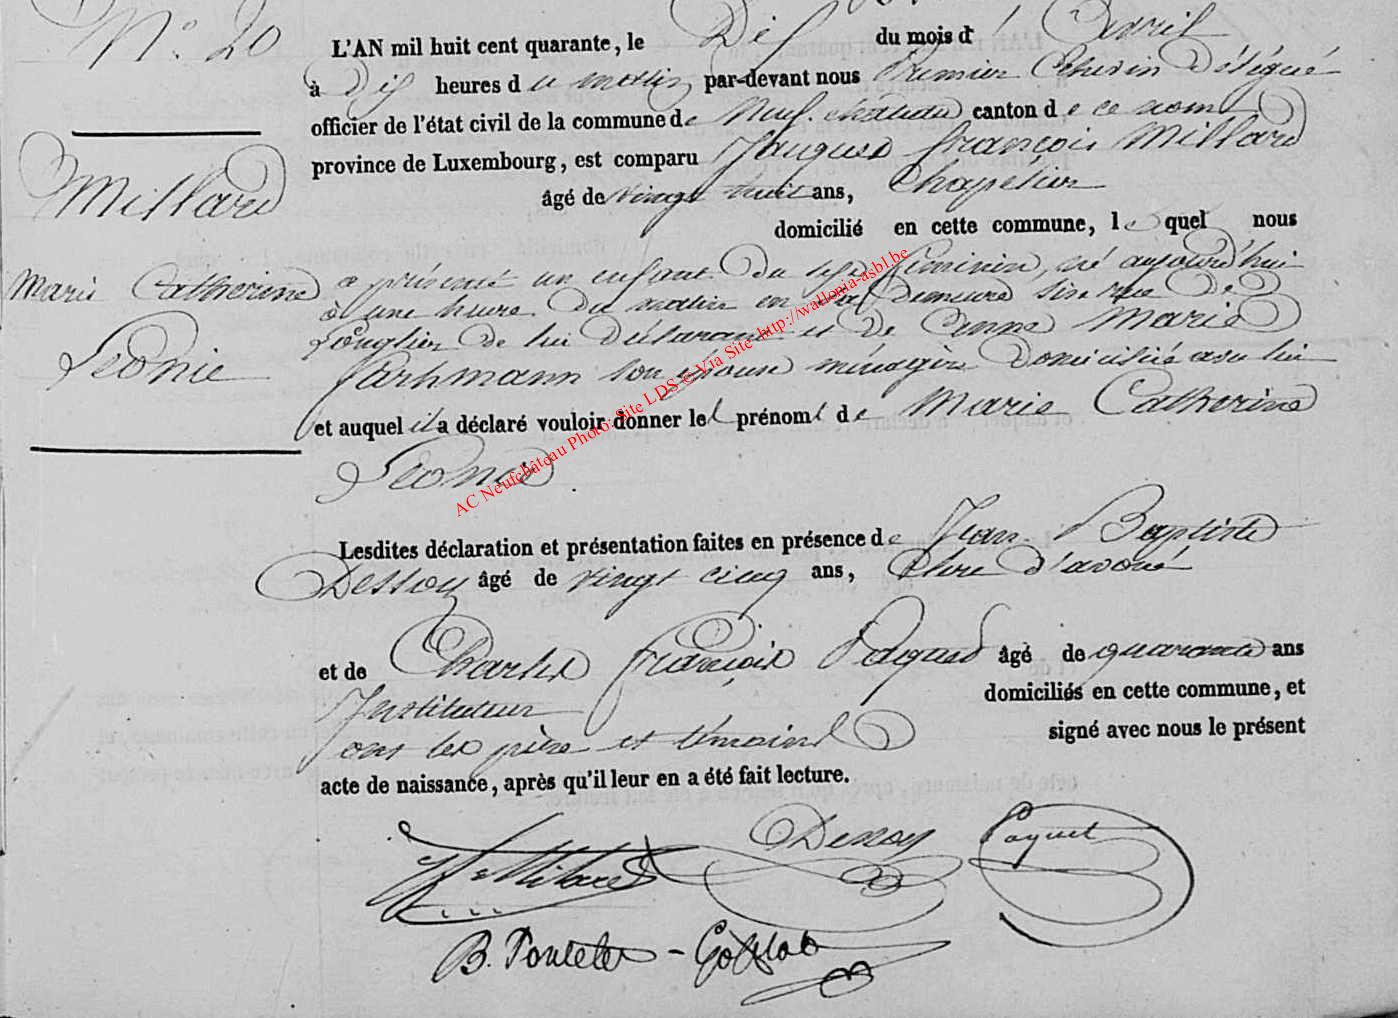 N° 20
Millard
Marie Catherine
Léonie
L'AN mil huit cent quarante, le Dix du mois d'avril
à Dix heures du matin par-devant nous Premier Echevin Délégué
officier de l'état civil de la commune de Neufchateau canton de ce nom
province de Luxembourg, est comparu Jacques François Millard
âgé de vingt huit ans, Chapelier
domicilié en cette commune, lequel nous
a présenté un enfant du sexe féminin, né aujourd'hui
à une heure du matin en sa demeure sise rue de
Longlier de lui déclarant et de Anne Marie
son épouse ménagère domiciliée avec lui
et auquel il a déclaré vouloir donner les prénoms de Marie Catherine
Léonie
Lesdites déclaration et présentation faites en présence de Jean Baptiste
Dessoy âgé de vingt cinq ans, Clerc d'avoué
et de Charles François Paquet âgé de quarante ans
Instituteur domiciliés en cette commune, et
ont les père et témoins signé avec nous le présent
acte de naissance, après qu'il leur en a été fait lecture.
Dessoy Paquet
AC Neufchâteau Photo: Site LDS © Via Site -http://wallonia-asbl.be